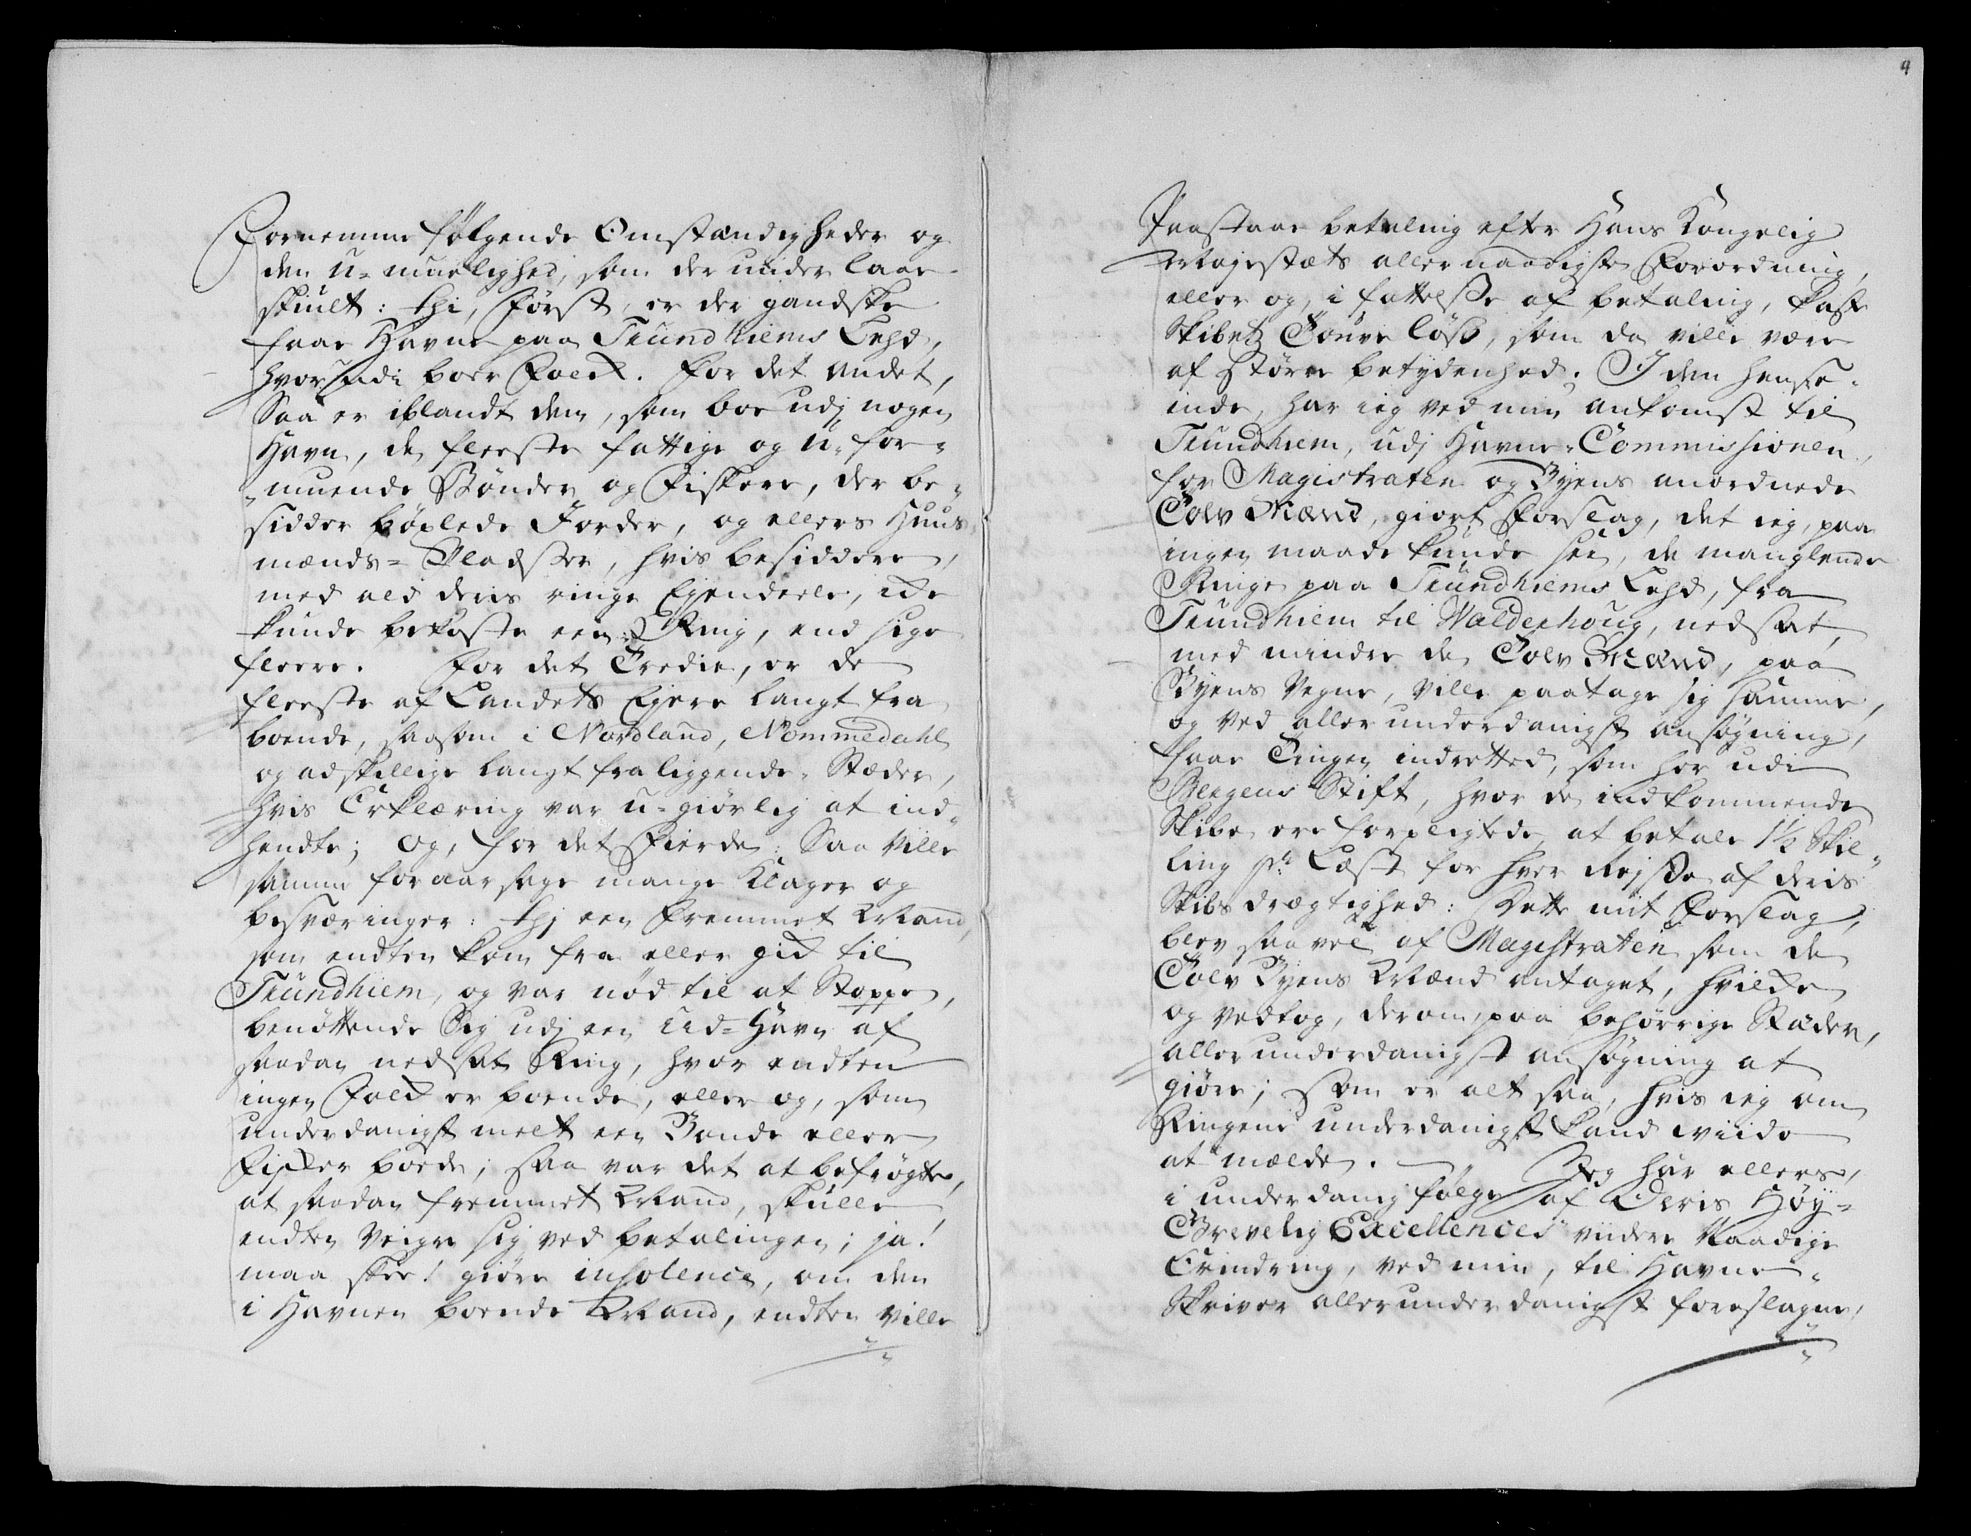 Fornemme følgende Omstændigheder og
den u-muelighed, som der under laae
skiult: thi, Først, er der gandske
faae Havne paa Trundhiems Lehd,
hvorudi boer Folck. For det andet,
Saa er iblandt dem, som boe udj nogen
Havn, de fleeste fattige og u-for-
muende Bønder og Fiskere, der be-
sidder böxlede Jorder, og ellers Huus
mænds-Pladser, hvis besiddere,
med all deris ringe Ejendeele, icke
kunde bekoste een Ring, end sige
fleere. For det Tredie, er de
fleeste af Landets Ejere langt fra
boende, saasom i Nordland, Nommedahl
og adskillige langt fra liggende Stæder,
hvis Erklæring var u-giørlig at ind-
hendte; Og, for det Fierde: Saa ville
samme foraarsage mange Klager og
besværinger: thj een fremmet Mand,
som endten kom fra eller gick til
Trundhiem, og var nød til at Stoppe,
benöttende Sig udj een Ud-Havn af
saadan nedsat Ring, hvor endten
ingen Folck er boende, eller og, som
underdanigst melt een Bonde eller
Fisker boede; saa var det at befrögte,
at saadan fremmet Mand, skulle
endten veigre sig ved betalingen; ja!
maa skee! giöre insolence, om den
i Havnen boende Mand, endten ville
4
Paastaae betaling efter Hans Kongelig
Majestæts allernaadigste Forordning,
eller og, i fattelse af betaling, kaste
Skibets Touve löse, som da ville være
af større betydenhed. I den hense-
ende, har ieg ved min ankomst til
Trundhiem, udj Havne-Commissionen,
for Magistraten og Byens anordnede
Tolv Mænd, giort Forslag, det ieg, paa
ingen maade kunde see, de manglende
Ringe paa Trundhiems Lehd, fra
Trundhiem til Valderhoug, nedsat,
med mindre de Tolv Mænd, paa
Byens Vegne, ville paatage sig samme,
og ved allerunderdanigst ansøgning,
faae Tingen indretted, som her udi
Bergens Stift, hvor de indkommende
Skibe ere forpligtede at betale 1½ Skil-
ling pr. Læst for hver Rejse af deris
Skibs drægtighed: Dette mit Forslag,
blev saa vel af Magistraten som de
Tolv Byens Mænd antaget, hvilcke
og vedtog, derom, paa behörrige Stæder,
allerunderdanigst ansøgning at
giöre; som er alt saa, hvis ieg om
Ringene underdanigst kand viide
at mælde. Jeg har ellers,
i underdanig følge af Deris Höy-
Grevelig Excellences viidere Naadige
Erindring, ved min, til Havne-
Skriver allerunderdanigst foreslagne,